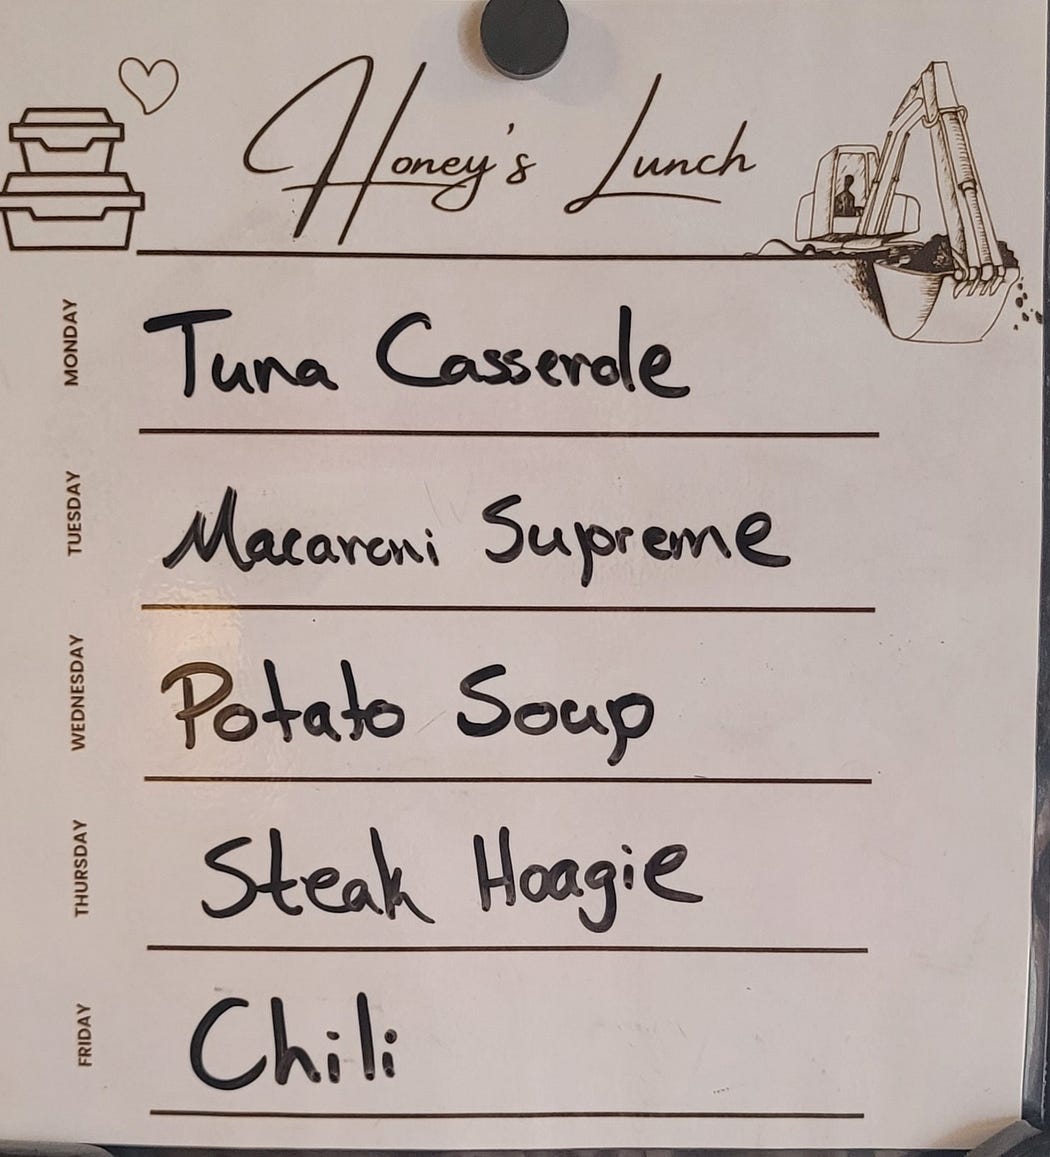 Honey's Lunch
MONDAY
Tuna Casserole
TUESDAY
Macaroni Supreme
WEDNESDAY
Potato Soup
THURSDAY
Steak Hoagie
FRIDAY
Chili